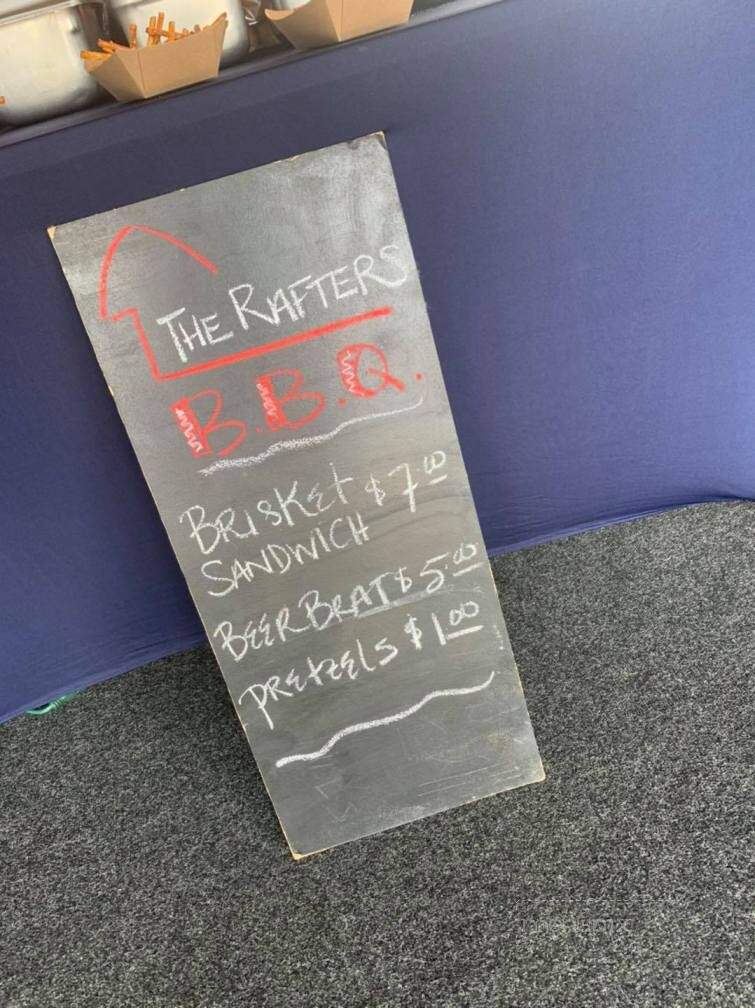 THE RAFTERS
B.B.Q.
BRISKET $7.00
SANDWICH
BEER BRAT $5.00
PRETZELS $1.00